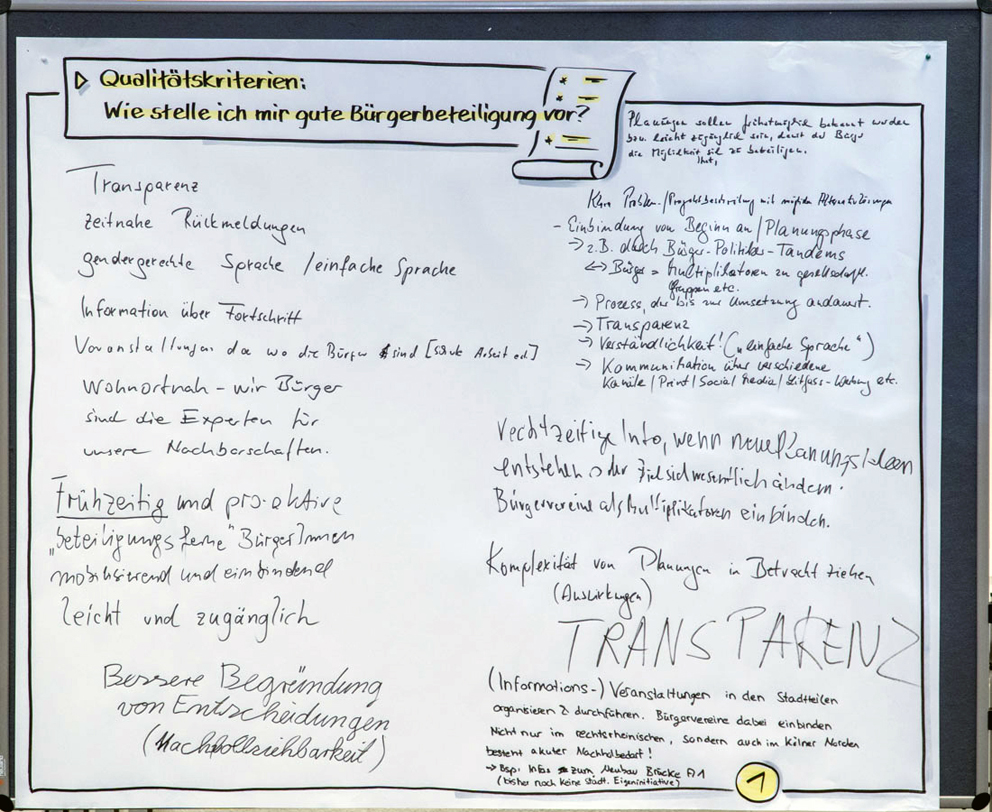 Qualitätskriterien:
Wie stelle ich mir gute Bürgerbeteiligung vor?
Transparenz
zeitnahe Rückmeldungen
gendergerechte Sprache / einfache Sprache
Information über Fortschritt
Veranstaltungen da wo die Bürger sind
wohnortnah – wir Bürger
sind die Experten für
unsere Nachbarschaften.
Frühzeitig und pro-aktive
"beteiligungsferne" BürgerInnen
mobilisierend und einbindend
leicht und zugänglich
Bessere Begründung
von Entscheidungen
(Nachvollziehbarkeit)
Planungen sollen frühstmöglich bekannt werden
bzw. leicht zugänglich sein, damit der Bürger
die Möglichkeit hat, sich zu beteiligen.
Klare Problem-/Projektbeschreibung mit möglichen Alternativlösungen
- Einbindung von Beginn an / Planungsphase
→ z.B. durch Bürger-Politiker-Tandems
↔ Bürger = Multiplikatoren zu gesellschaftl.
Gruppen etc.
→ Prozess, der bis zur Umsetzung andauert.
→ Transparenz
→ Verständlichkeit! ("einfache Sprache")
→ Kommunikation über verschiedene
Kanäle / Print / Social Media / Litfass-Werbung etc.
rechtzeitige Info, wenn neue Planungsideen
entstehen oder Ziel sich wesentlich ändern.
Bürgervereine als Multiplikatoren einbinden.
Komplexität von Planungen in Betracht ziehen
(Auswirkungen)
TRANSPARENZ
(Informations-) Veranstaltungen in den Stadtteilen
organisieren & durchführen. Bürgervereine dabei einbinden
Nicht nur im rechtsrheinischen, sondern auch im Kölner Norden
besteht akuter Nachholbedarf!
→ Bsp. Infos zum Neubau Brücke A1
(bisher noch keine städt. Eigeninitiative)
1